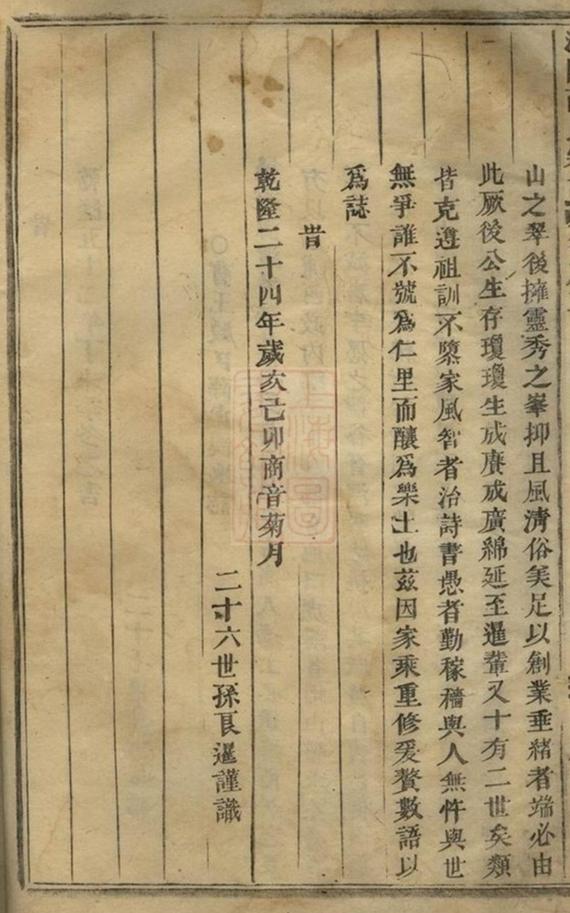 山之翠後擁靈秀之峯抑且風清俗美足以創業垂緒者端必由
此厥後公生存瓊瓊生成賡成廣綿延至暹輩又十有二世矣類
皆克遵祖訓不墜家風智者治詩書愚者勤稼穡與人無忤與世
無爭誰不號為仁里而釀為樂土也茲因家乘重修爰贅數語以
為誌
旹
乾隆二十四年歲亥己卯商音菊月
二十六世孫良暹謹識